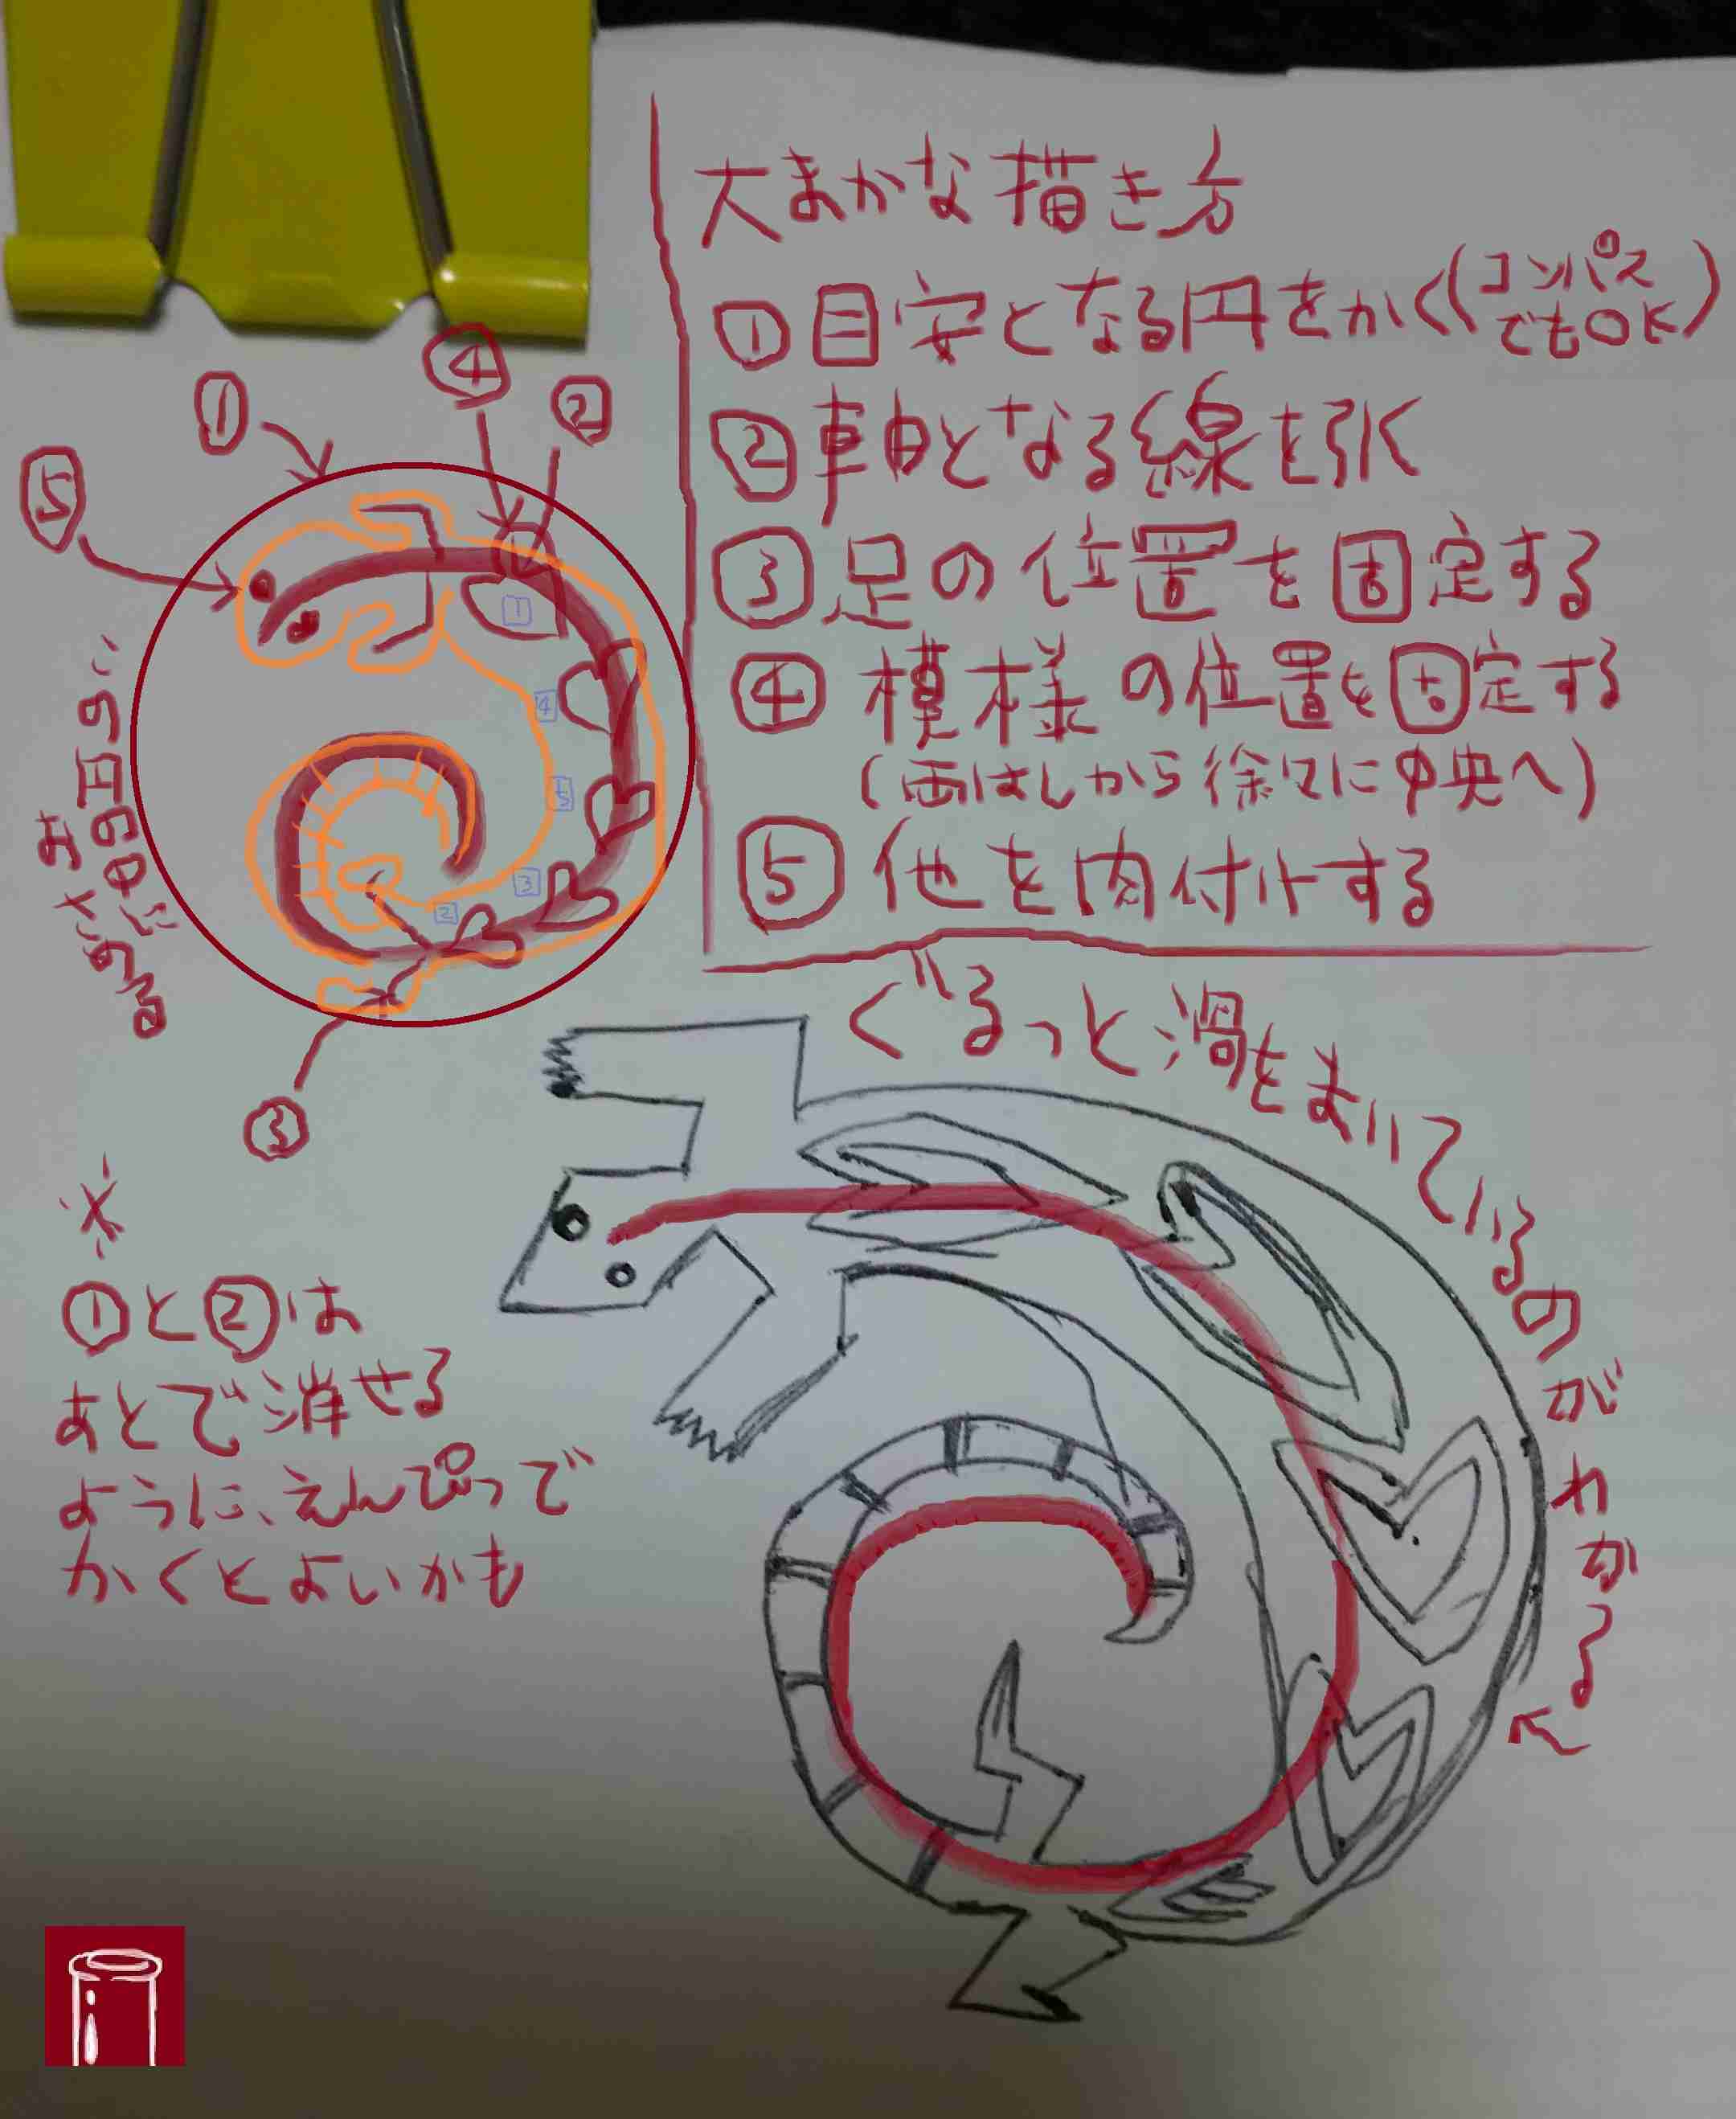 大まかな描き方
①目安となる円をかく(コンパスでもOK)
②軸となる線を引く
③足の位置を固定する
④模様の位置を固定する
(両はしから徐々に中央へ)
⑤他を肉付けする
④
①
②
⑤
1
4
5
3
2
③
この円の中に
おさめる
ぐるっと渦をまいているのがわかる
※
①と②は
あとで消せる
ように、えんぴつで
かくとよいかも